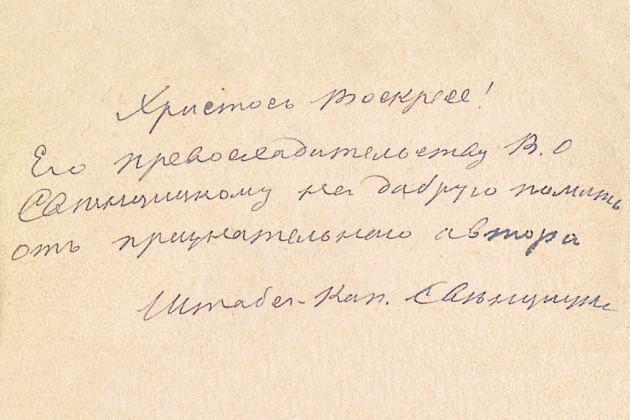 Христосъ Воскресе!
Его превосходительству В. О
на добрую память
отъ признательнаго автора
Штабсъ-Кап.